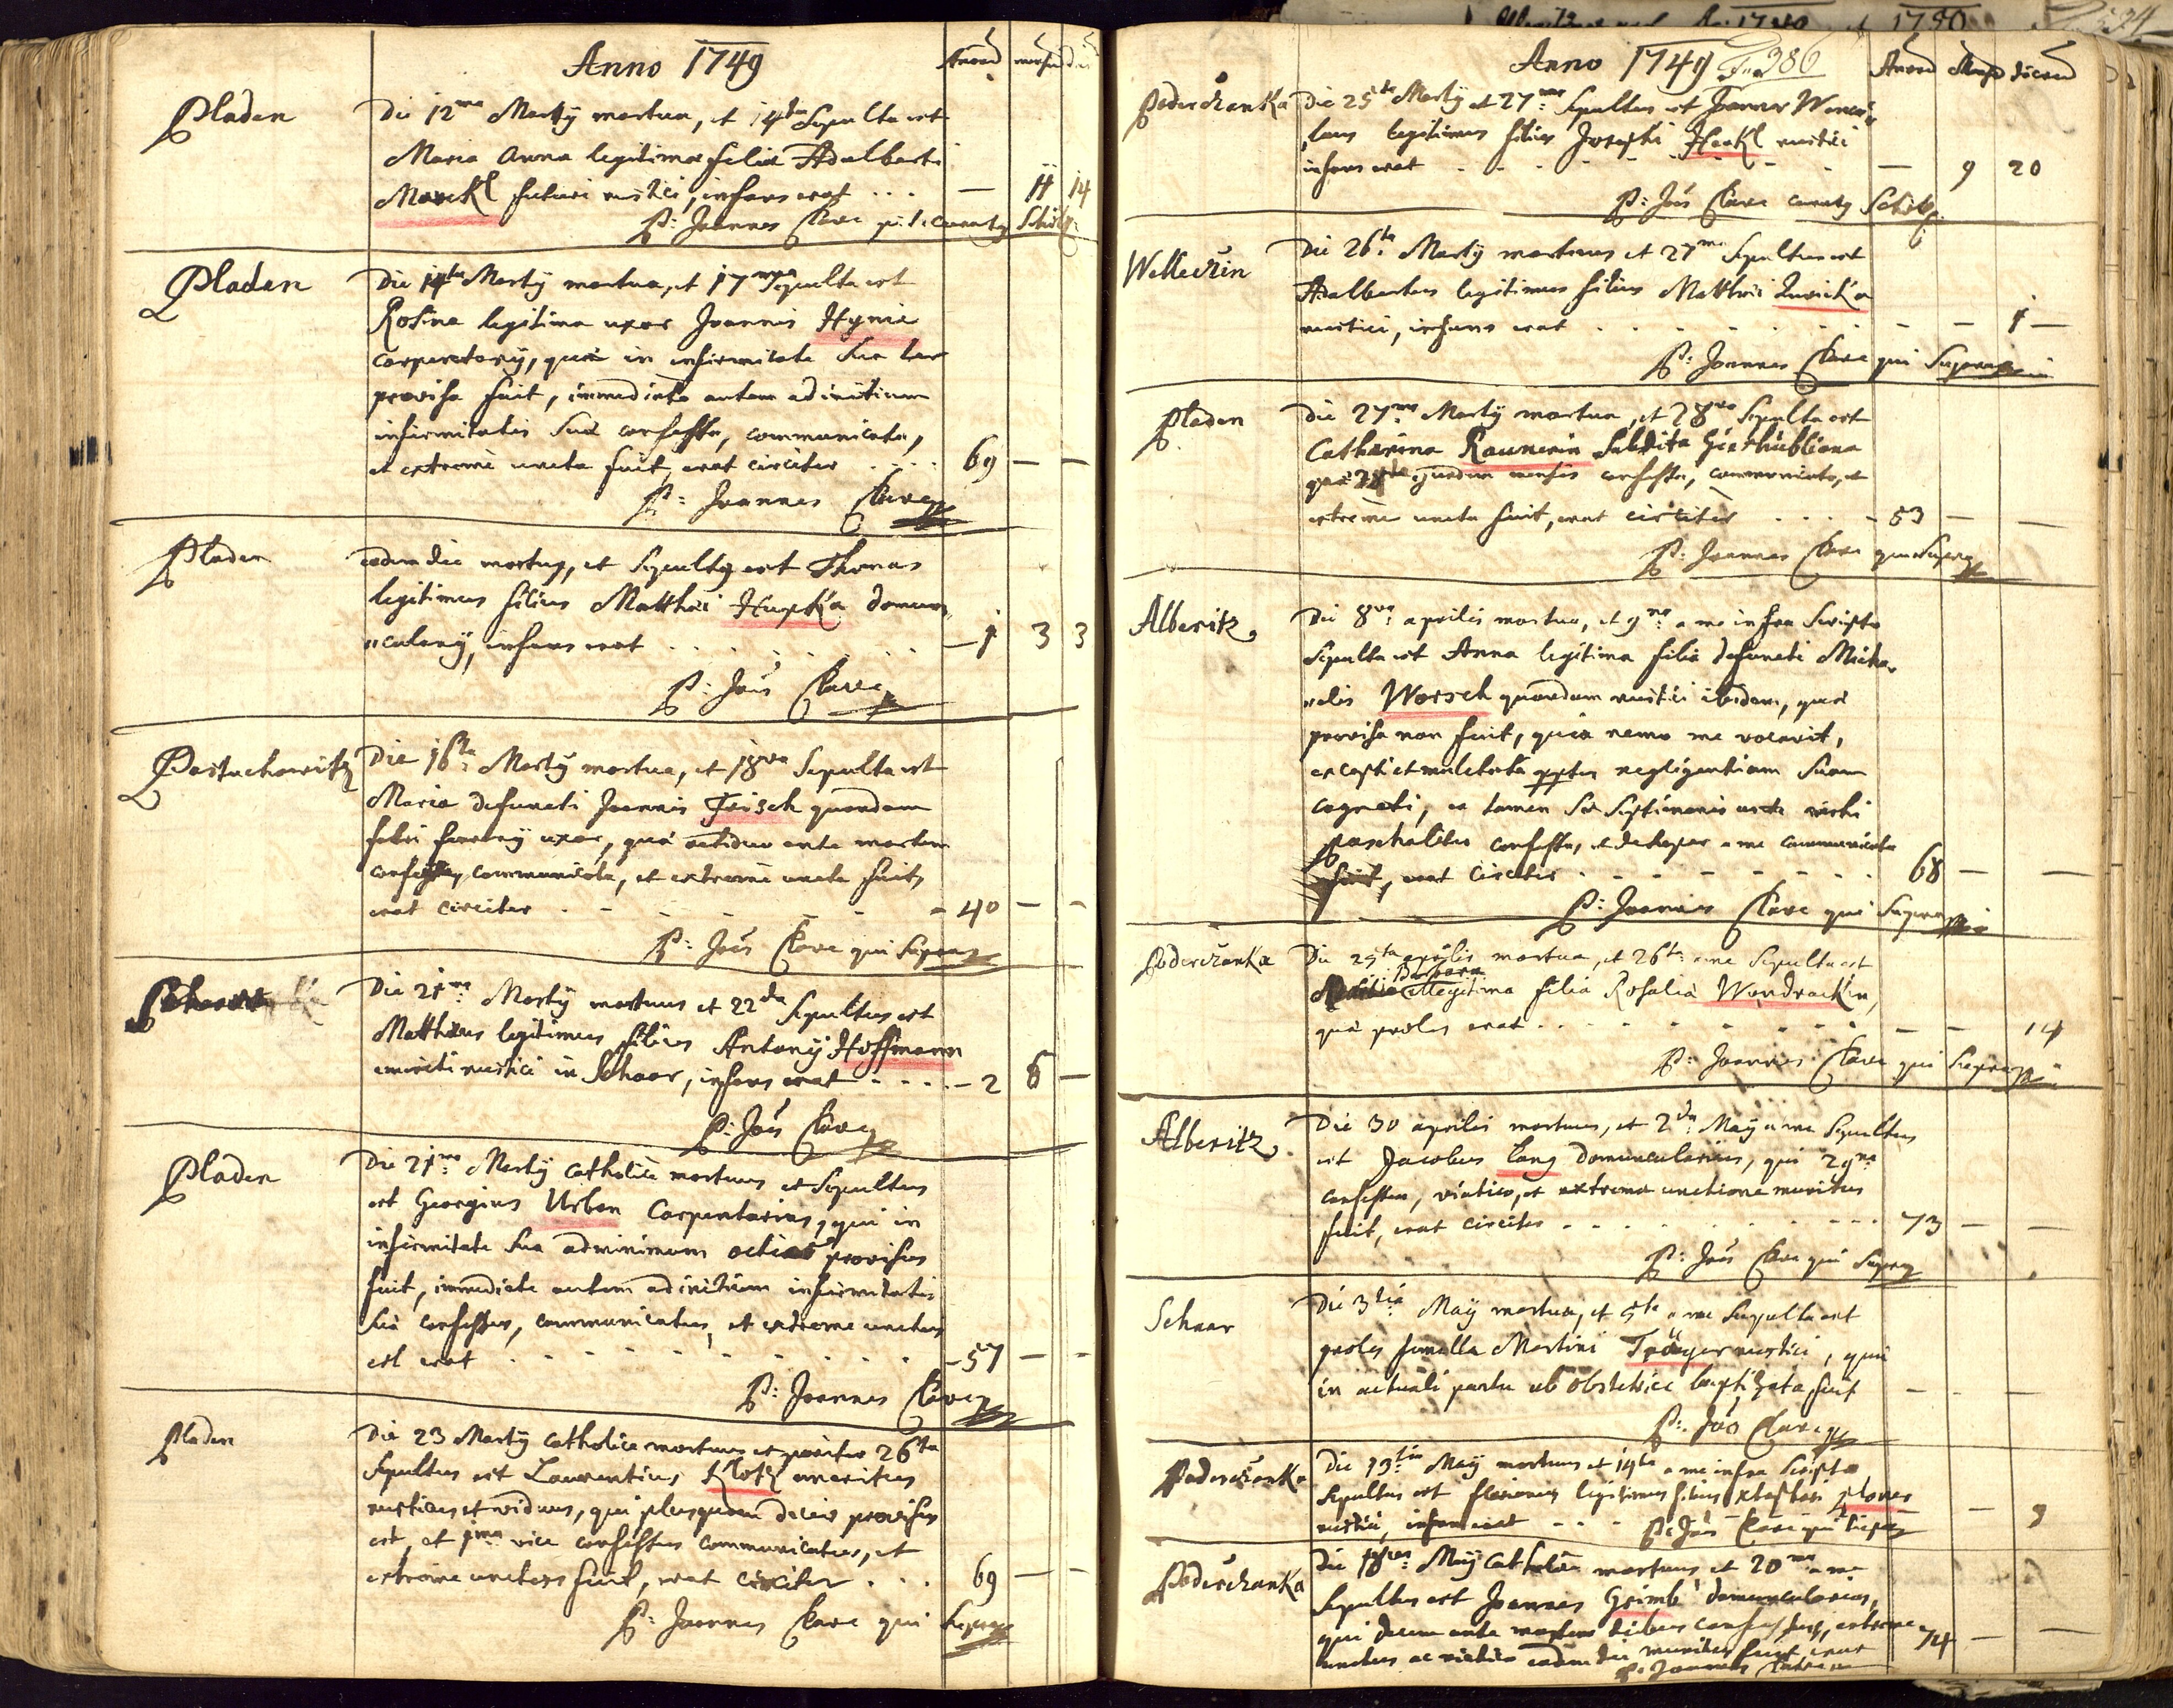 Anno 1749
Pladen
Die 12ma Martÿ mortua, et 14ta Sepulta est
Maria Anna legitima filia Adalberti
Marckl futuri rustici, infans erat ... — 11 14
P: Joannes Clave p: t: Curatg Schitz:
Pladen
Die 14ta Martÿ mortua, et 17ma Sepulta est
Rosina legitima uxor Joannis Hynie
carpentarÿ, quæ in infirmitate sua ter
provisa fuit, immediate autem ad initium
infirmitatis suæ confessa, communicata,
et extreme uncta fuit, erat circiter .... 69 — —
P: Joannes Clave
Pladen
eadem die mortuq, et Sepultq est Thomas
legitimus filius Matthæi Hupka domun-
culary, infans erat ....... 1 3 3
P: Joës Clave
Postuchowitz
Die 16ta Martÿ mortua, et 18va Sepulta est
Maria defuncti Joannis Frisch quondam
fabri ferrarÿ uxor, quæ octiduo ante mortem
confessa, communicata, et extreme uncta fuit,
erat circiter ....... 40 — —
P: Joës Clave qui Supra
Die 21ma Martÿ mortuus et 22da Sepultus est
Matthæus legitimus filius Antonÿ Hoffmann
emeriti rustici in Schaar, infans erat .... 2 6 —
P: Joës Clave
Pladen
Die 21ma Martÿ catholicè mortuus et Sepultus
est Georgius Urban Carpentarius, qui in
infirmitate sua ad minimum octies provisus
fuit, immediate autem ad initium infirmitatis
suæ confessus, communicatus, et extreme unctus
est erat ....... 57 — —
P: Joannes Clave
Pladen
Die 23 Martÿ catholice mortuus et pariter 26ta
Sepultus est Laurentius Klotz emeritus
rusticus et viduus, qui plusquam decies provisus
est, et 1ma vice confessus communicatus, et
extreme unctus fuit, erat circiter ... 69 — —
P: Joannes Clave qui Supra
Anno 1749 286
Poderschanka
Die 25ta Martÿ et 27ma Sepultus est Joannes Wences-
laus legitimus filius Josephi Hackl rustici
infans erat ....... — 9 20
P: Joës Clave Curatg Schitz:
Welleczin
Die 26ta Martÿ mortuus et 27ma Sepultus est
Adalbertus legitimus filius Matthæi Zwicka
rustici, infans erat ....... — 1 —
P: Joannes Clave qui Supra
Pladen
Die 27ma Martÿ mortua, et 28va Sepulta est
Catharina Raunerin Subdita Gieshübliana
quæ ejusdem mensis confessa, communicata, et
extreme uncta fuit, erat circiter .... 53 — —
P: Joannes Clave qui Supra
Alberitz
Die 8va aprilis mortua, et 9na a me infra Scripto
Sepulta est Anna legitima filia defuncti Micha-
elis Worsch quondam rustici ibidem, quæ
provisa non fuit, quia nemo me vocavit,
negligentiam suam
cognati, ea tamen
paschaliter confessa, et a me communicata
fuit, erat circiter ....... 68 — —
P: Joannes Clave qui Supra
Poderschanka
Die 25ta aprilis mortua, et 26ta a me Sepulta est
Barbara
illegitima filia Rosaliæ Wondrackin,
quæ proles erat ....... — — 14
P: Joannes Clave qui Supra
Alberitz
Die 30 aprilis mortuus, et 2da Maÿ a me Sepultus
est Jacobus Lang Domuncularius, qui 29na
confessus, viatico, et extrema unctione munitus
fuit, erat circiter ....... 73 — —
P: Joës Clave qui Supra
Schaar
Die 3tia Maÿ mortua, et 5ta a me Sepulta est
proles famella Martini Träger rustici, quæ
in actuali partu ab obstetrice baptizata fuit — — —
P: Joës Clave
Poderschanka
Die 13tia Maÿ mortuus et 14ta a me infra Scripto
Sepultus est florianus legitimus filius
rustici, infans erat ... — 9
P: Joës Clave qui Supra
Poderschanka
Die 18va Maÿ Catholice mortuus et 20ma a me
Sepultus est Joannes Grimb domuncularius,
qui decem ante mortem diebus confessus, extreme
unctus ac viatico eadem die munitus fuit, erat 74 — —
P: Joannes Clave